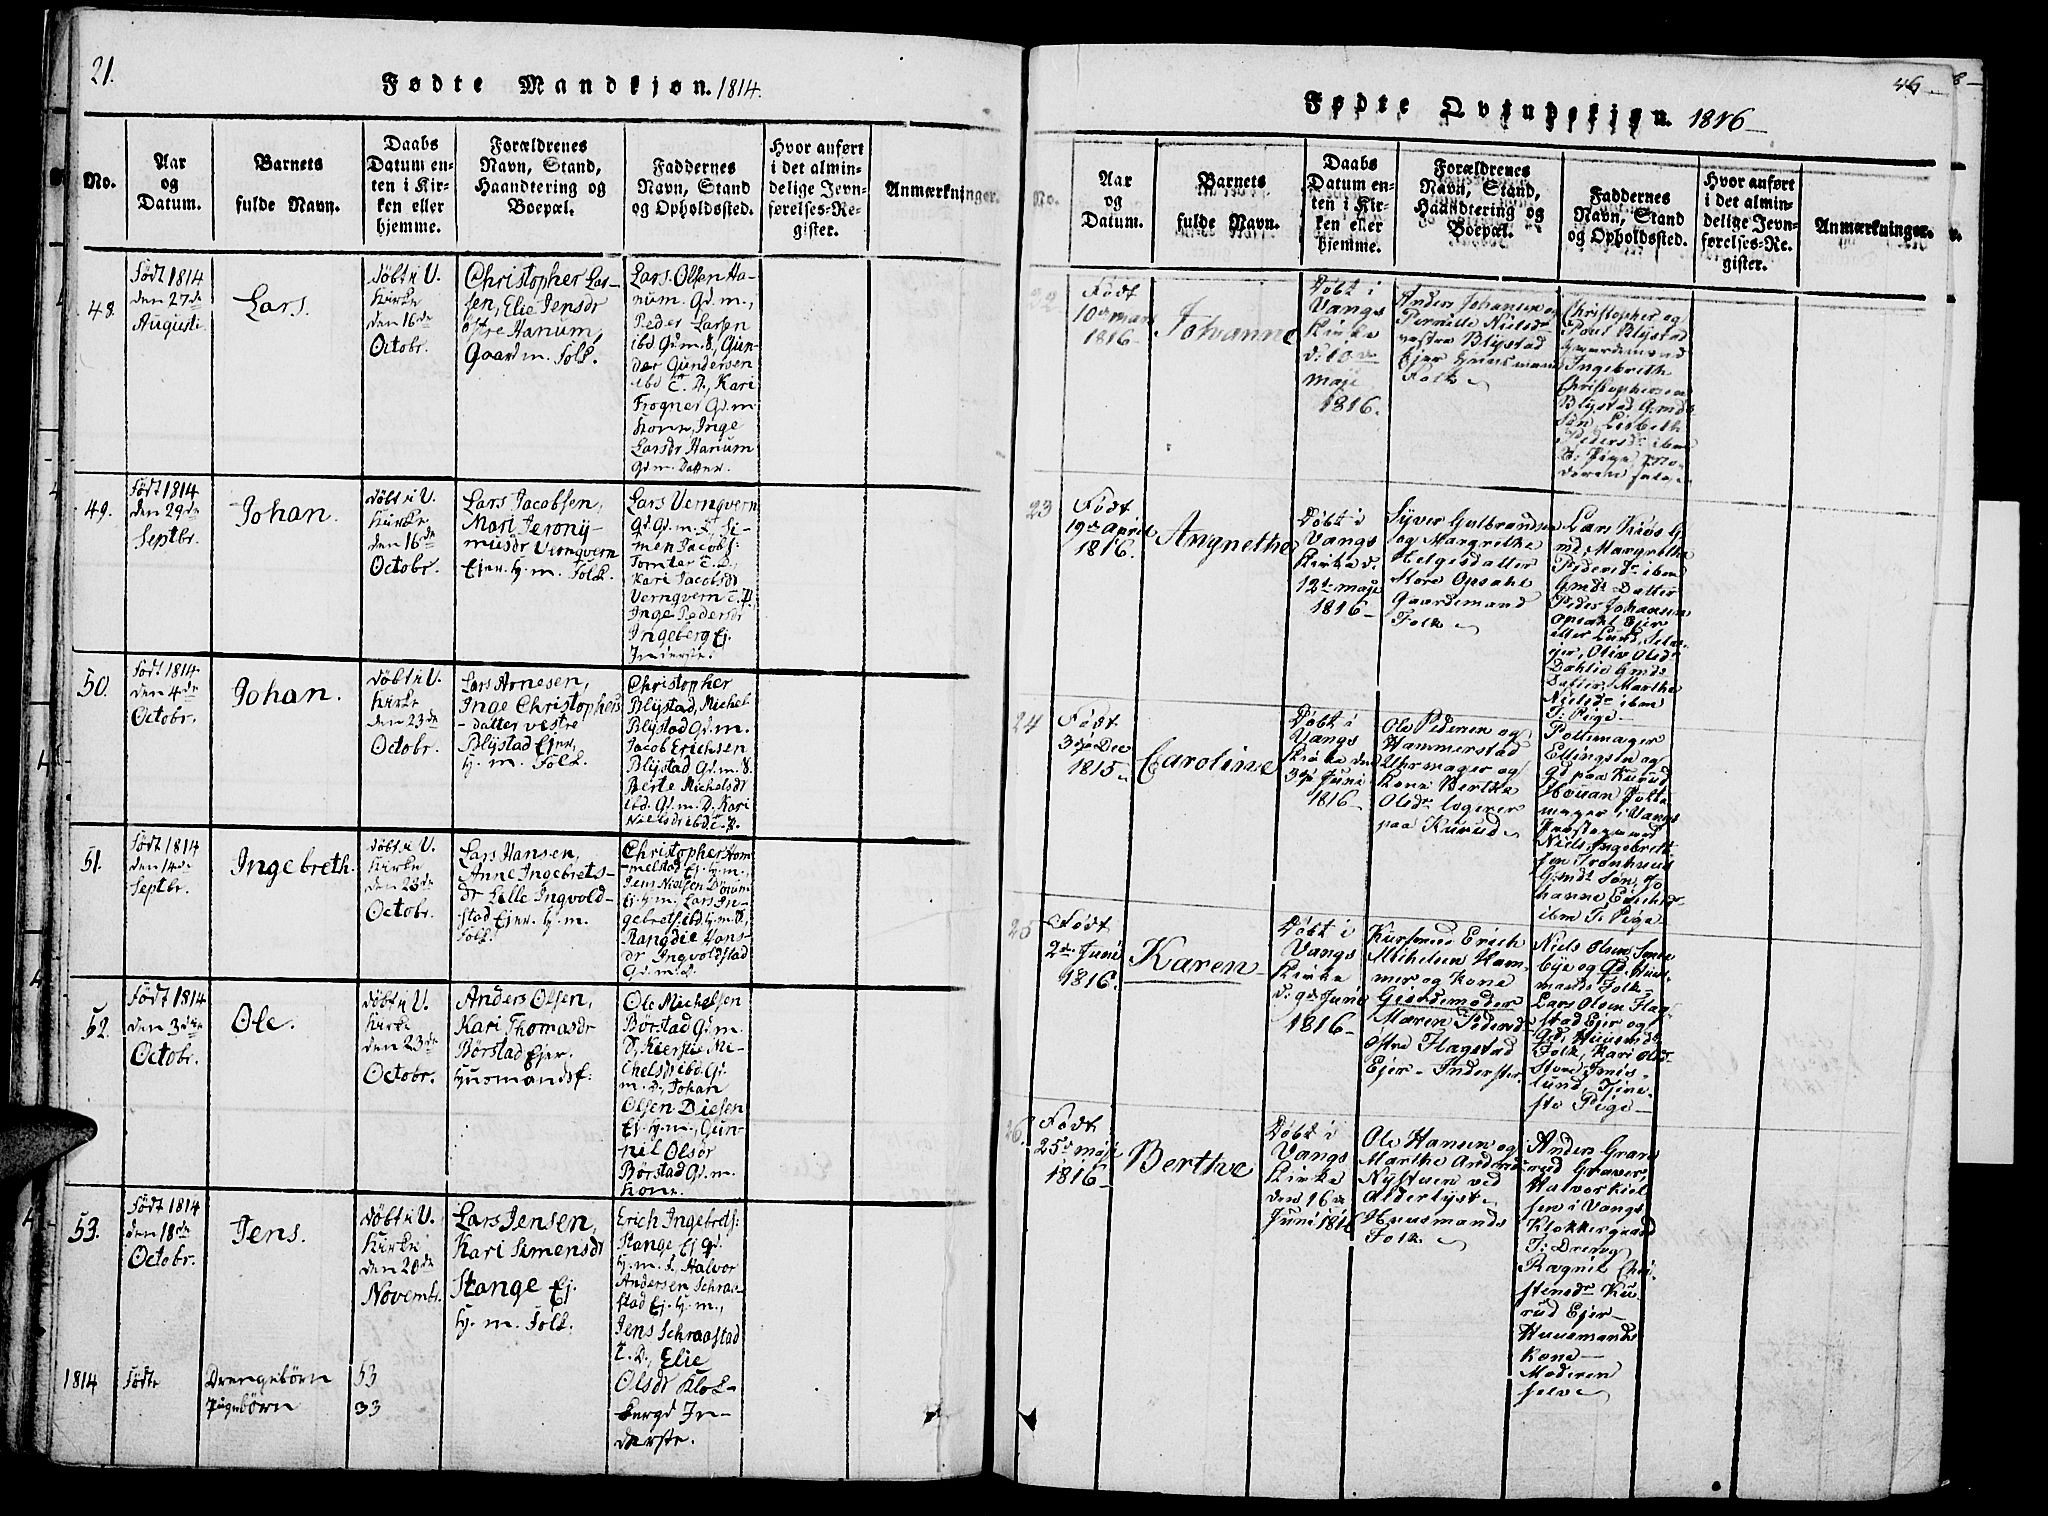 21.
Fødte Mandkjøn. 1814.
No.
Aar
og
Datum.
Barnets
fulde Navn.
Daabs
Datum en-
ten i Kir-
ken eller
hjemme.
Forældrenes
Navn, Stand,
Haandtering og
Boepæl.
Faddernes
Navn, Stand
og Opholdssted.
Hvor anført
i det almin-
delige Jevn-
førelses-Re-
gister.
Anmærkninger.
48.
Født 1814
den 27de
Augusti
Lars.
døbt i V.
Kirke
den 16de
Octobr.
Christopher Lar-
sen, Elie Jensdr
östre Hanum,
Gaardm. Folk.
Lars Olsen Ha-
num. Gd. m.,
Peder Larsen
ibd Gd. m. S., Gun-
der Gundersen
ibd T. D., Kari
Frogner Gd. m.
Kone, Inge
Larsdr Hanum
Gd. m. Datter.
49.
Født 1814
den 29de
Septbr.
Johan.
døbt i V.
Kirke
den 16de
Octobr.
Lars Jacobsen,
Mari Jerony-
musdr Verngvern
Ejer. H. m. Folk.
Lars Verngvern
Gd. m. Si-
men Jacobs:
Tomter T. D.,
Kari Jacobsdr
Verngvern T. P.,
Inge Pedersdr
Ingeberg Ej.
Inderste.
50.
Født 1814
den 4de
Octobr.
Johan.
døbt i V.
Kirke
den 23de
Octobr.
Lars Arnesen,
Inge Christophers
-datter vestre
Blystad Ejer,
H. m. Folk.
Christopher
Blystad, Michel
Blystad Gd. m.
Jacob Erichsen
Blystad Gd. m. S.
Berte Michelsdr
ibd. Gd. m. D. Kari
Nielsdr ibd. T. P.
51.
Født 1814
den 14de
Septbr.
Ingebreth.
døbt i V.
Kirke
den 23de
Octobr.
Lars Hansen,
Anne Ingebrets-
dr Lille Ingvold-
stad Ejer. H. m.
Folk.
Christopher Hom-
melstad Ej. H. m.,
Jens Nielsen Dörum
Ej. H. m. Lars In-
gebrets. ibd. H. m. S,
Rangdie Hans-
dr Ingvoldstad
Gd. m. D.
52.
Født 1814
den 3die
Octobr.
Ole.
døbt i V.
Kirke
den 23de
Octobr.
Anders Olsen,
Kari Thomasdr
Börstad Ejer.
Husmandsf:
Ole Michelsen
Börstad Gd. m.
S, Kierstie Mi-
chelsdr ibd. Gd.
m. D., Johan
Olsen Diesen
Ej. H. m., Gun-
nel Olsdr
Börstad Gd. m.
Kone.
53.
Født 1814
den 18de
Octobr.
Jens.
døbt i V.
Kirke
den 20de
Novembr.
Lars Jensen,
Kari Simensdr
Stange Ej.
H. m. Folk.
Erich Ingebrets:
Stange Ej. Gd.
H. m. S, Halvor
Andersen Schraa-
stad Ej. H. m.,
Jens Schraastad
T. D., Elie
Olsdr Klok-
bergd In-
derste.
1814 Fødte Drengebörn 53
Pigebörn 33
46
Fødte Qvindekjøn. 1816
No.
Aar
og
Datum.
Barnets
fulde Navn.
Daabs
Datum en-
ten i Kir-
ken eller
hjemme.
Forældrenes
Navn, Stand,
Haandtering og
Boepæl.
Faddernes
Navn, Stand
og Opholdssted.
Hvor anført
i det almin-
delige Jevn-
førelses-Re-
gister.
Anmærkninger.
22
Født
10de mars
1816
Johanne
Døbt i
Vangs
Kirke
d: 10de
maji
1816.
Anders Johansen og
Pernille Nielsdr
vestre Blystad
Ejer Huusmands
Folk
Christopher og
Poul Blystad
Gaardmænd
Ingebreth
Christophersen
Blystad Gmds
Søn, Lisbeth
Pedersdr ibm
T: Pige Mo-
deren selv
23
Født
19de April
1816.
Angnethe
Døbt i
Vangs
Kirke d.
12te maji
1816
Syver Gulbrandsen
og Margrethe
Helgesdatter
Store Opsahl
Gaardemand
Folk
Lars Kiøs G
md, Margrethe
Pedersdr ibm
Gmds Datter
Peder Johansen
Opsahl Ejer
eller Lund, Selv-
ejer, Oliv Olsdr
Dahlie Gmds
Datter, Marthe
Nielsdr ibm
T: Pige
24
Født
Dec
1815
Caroline
Døbt i
Vangs
Kirke den
Juni
1816
Ole Pedersen og
Hammerstad
Uhrmager og
Kone Berthe
Olsdr logerer
paa Kurud
Pottemager
Ellingsen og
paa Kurud
Potte
mager i Vangs
Præstegaard
Niels Ingebreth-
sen Tronhuus
Gmds Søn, Jo
hanne Erichsdr
ibm T: Pige
25
Født
2de Juni
1816.
Karen
Døbt i
Vangs
Kirke
d. 9de Juni
1816
Kursmed Erich
Mikelsen Ham-
mer og Kone
Giordemoder
Maren Pedersdr
østre Flagstad
Ejer Inderster.
Niels Olsen Smee
bye og Gd. Huus-
mands Folk
Lars Olsen Flag-
stad Ejer og
Gd. Huusmds
Folk, Kari Olsdr
Store Imis-
lund, Tjene-
ste Pige
26
Født
25de maji
1816
Berthe
Døbt i
Vangs
Kirke
den 16de
Juni 1816
Ole Hansen og
Marthe Andersdr
Nystuen ved
Alderlyst
Huusmands
Folk
Anders Gran
rud Graver,
Halvor Kiel
sen i Vangs
Klokkergaard
T: Dreng
Ragnil Chri-
stensdr Ku-
rud Ejer
Huusmands
Kone
Moderen
selv